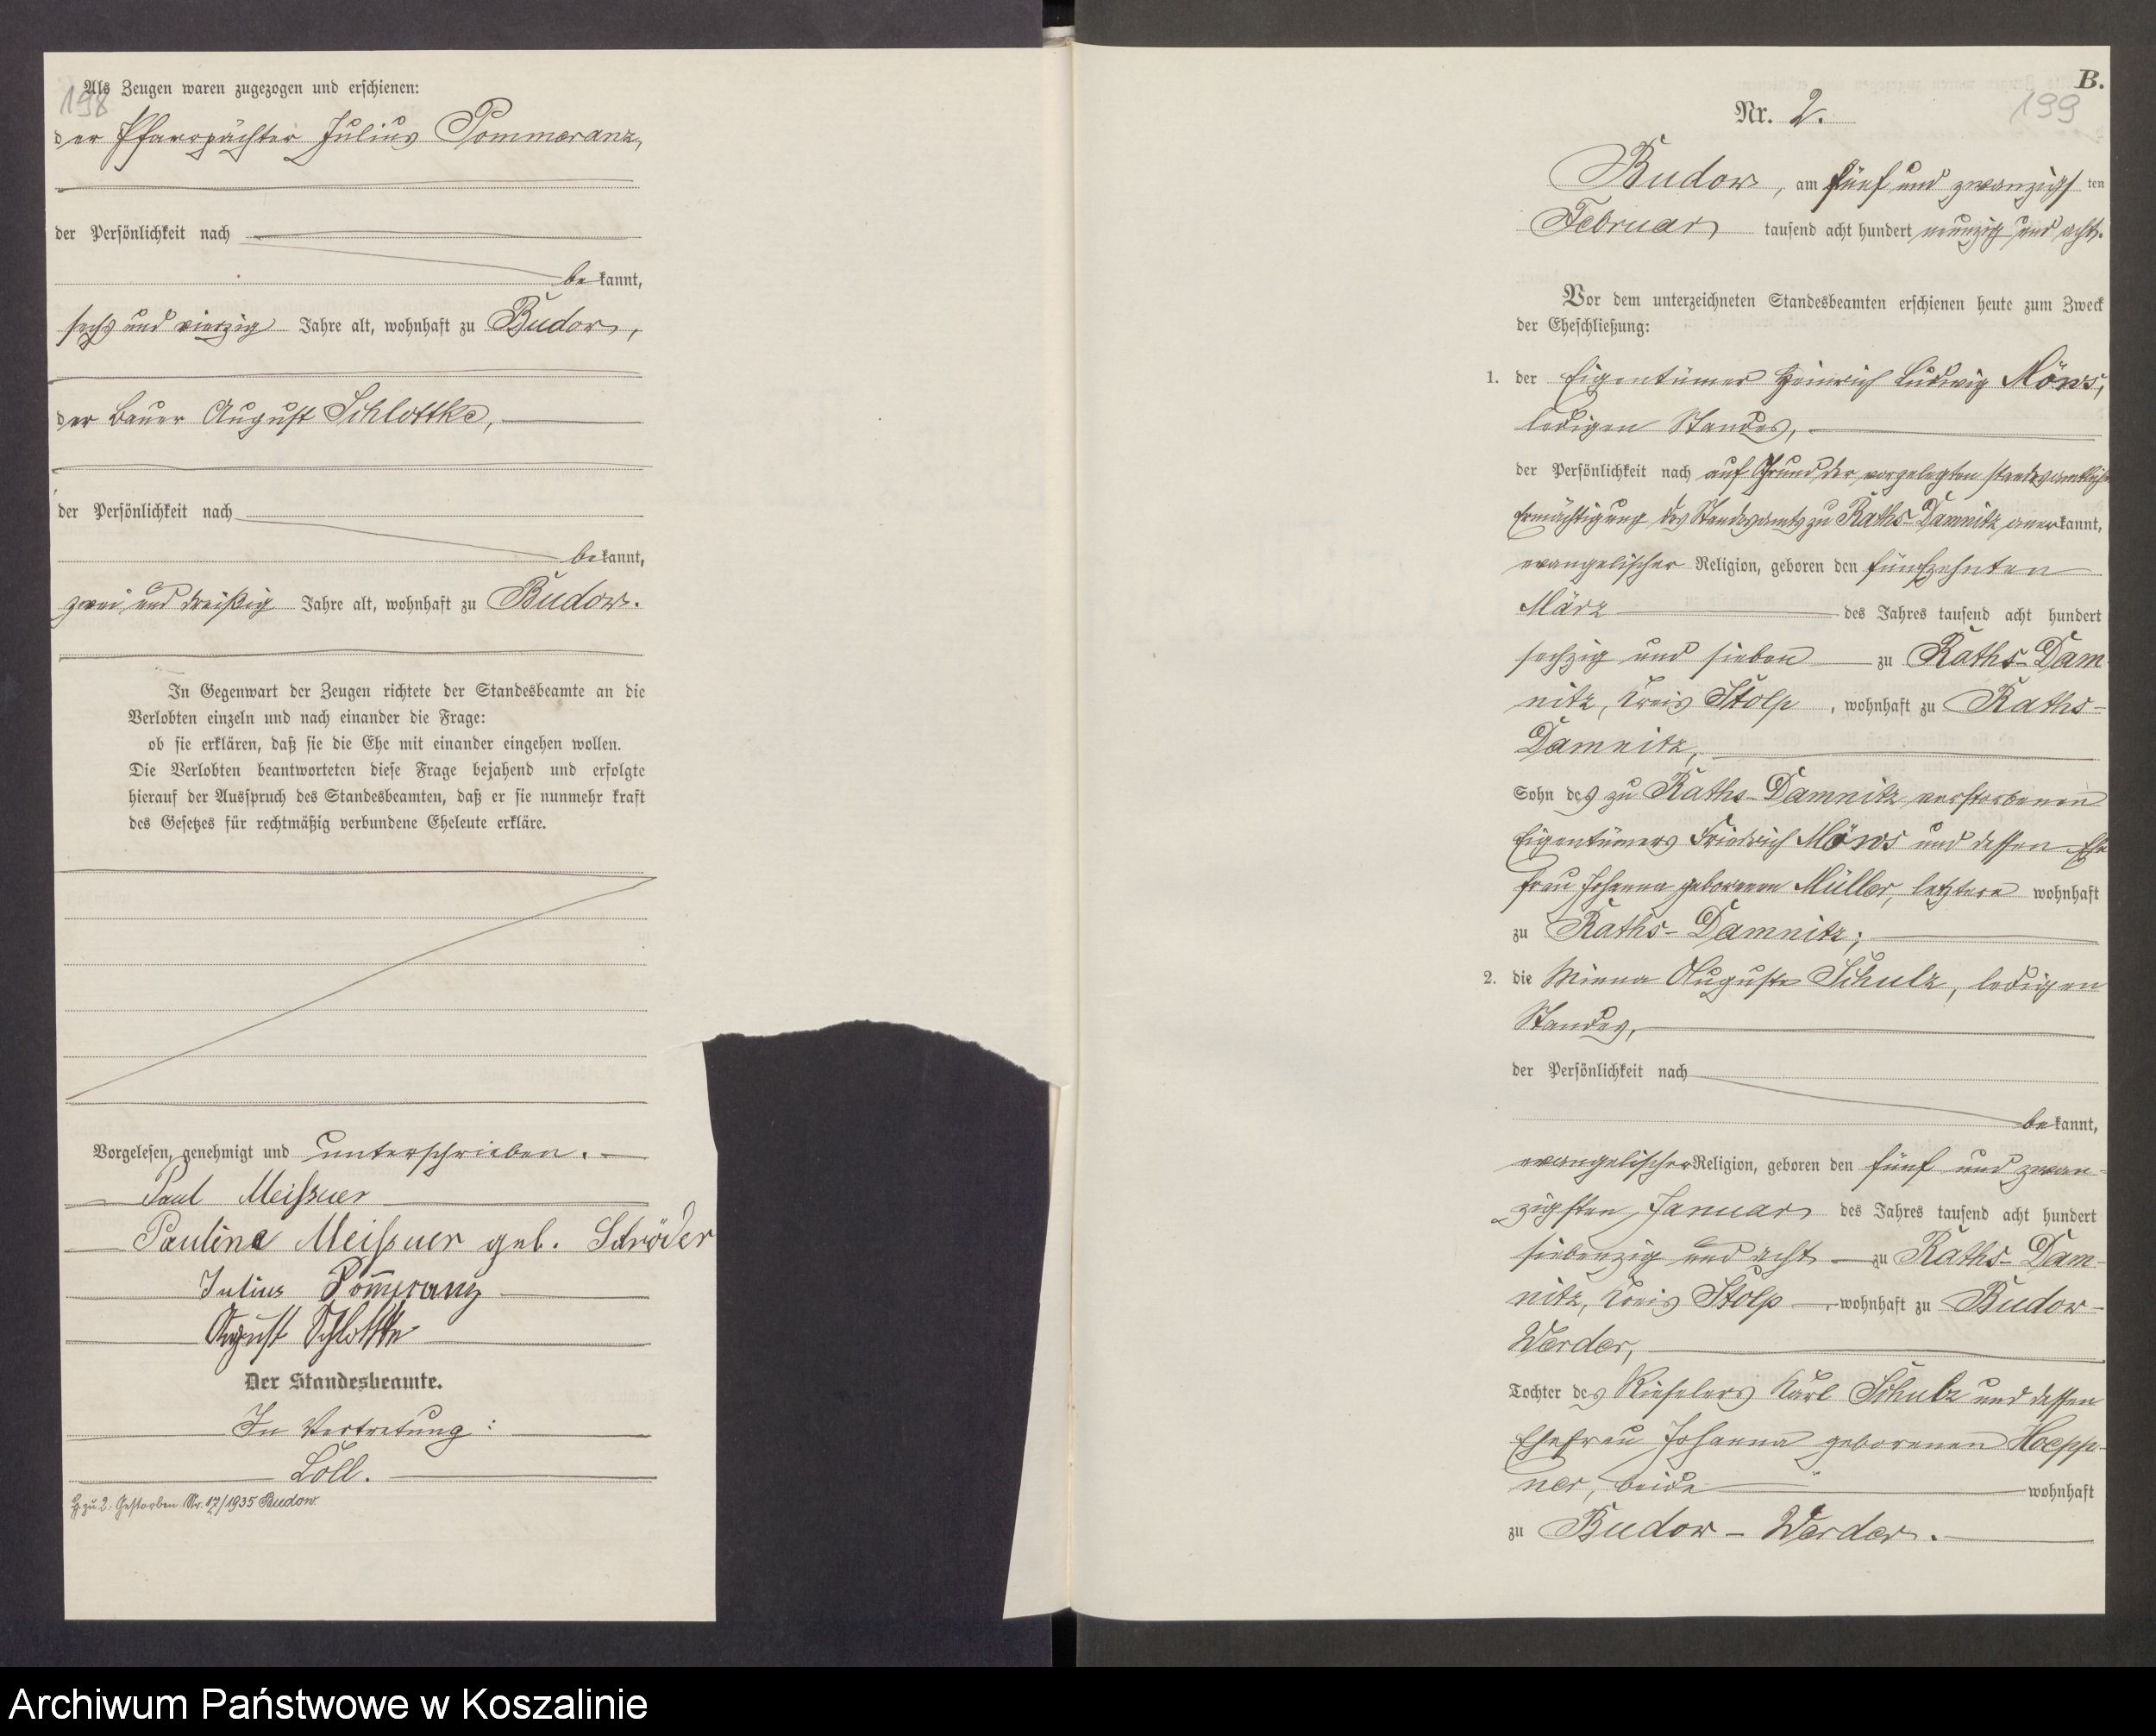 198
Als Zeugen waren zugezogen und erschienen:
der Pfarrpächter Julius Pommeranz,
der Persönlichkeit nach
be kannt,
sechs und vierzig Jahre alt, wohnhaft zu Budow,
der Bauer August Schlottke,
der Persönlichkeit nach
bekannt,
zwei und dreißig Jahre alt, wohnhaft zu Budow.
In Gegenwart der Zeugen richtete der Standesbeamte an die
Verlobten einzeln und nach einander die Frage:
ob sie erklären, daß sie die Ehe mit einander eingehen wollen.
Die Verlobten beantworteten diese Frage bejahend und erfolgte
hierauf der Ausspruch des Standesbeamten, daß er sie nunmehr kraft
des Gesetzes für rechtmäßig verbundene Eheleute erkläre.
Vorgelesen, genehmigt und unterschrieben.
Paul Meißner
Pauline Meißner geb. Schröder
Julius Pom̄eranz
August Schlottke
Der Standesbeamte.
In Vertretung:
Loll.
zu 2: Gestorben Nr. 17/1935 Budow.
B.
199
Nr. 2.
Budow, am fünf und zwanzigsten
Februar tausend acht hundert neunzig und acht.
Vor dem unterzeichneten Standesbeamten erschienen heute zum Zweck
der Eheschließung:
1. der Eigentümer Heinrich Ludwig Möws,
ledigen Standes,
der Persönlichkeit nach auf Grund der vorgelegten standesamtlichen
Ermächtigung des Standesamts zu Raths-Damnitz anerkannt,
evangelischer Religion, geboren den fünfzehnten
März des Jahres tausend acht hundert
sechzig und sieben zu Raths-Dam
nitz, Kreis Stolp, wohnhaft zu Raths-
Damnitz,
Sohn des zu Raths-Damnitz verstorbenen
Eigentümers Friedrich Möws und dessen Ehe
frau Johanna geborenen Müller, letztere wohnhaft
zu Raths-Damnitz;
2. die Minna Auguste Schulz, ledigen
Standes,
der Persönlichkeit nach
bekannt,
evangelischer Religion, geboren den fünf und zwan-
zigsten Januar des Jahres tausend acht hundert
siebenzig und acht zu Raths-Dam-
nitz, Kreis Stolp, wohnhaft zu Budow-
Werder,
Tochter des Rieselers Karl Schulz und dessen
Ehefrau Johanna geborenen Hoepp-
ner, beide wohnhaft
zu Budow-Werder.
Archiwum Państwowe w Koszalinie